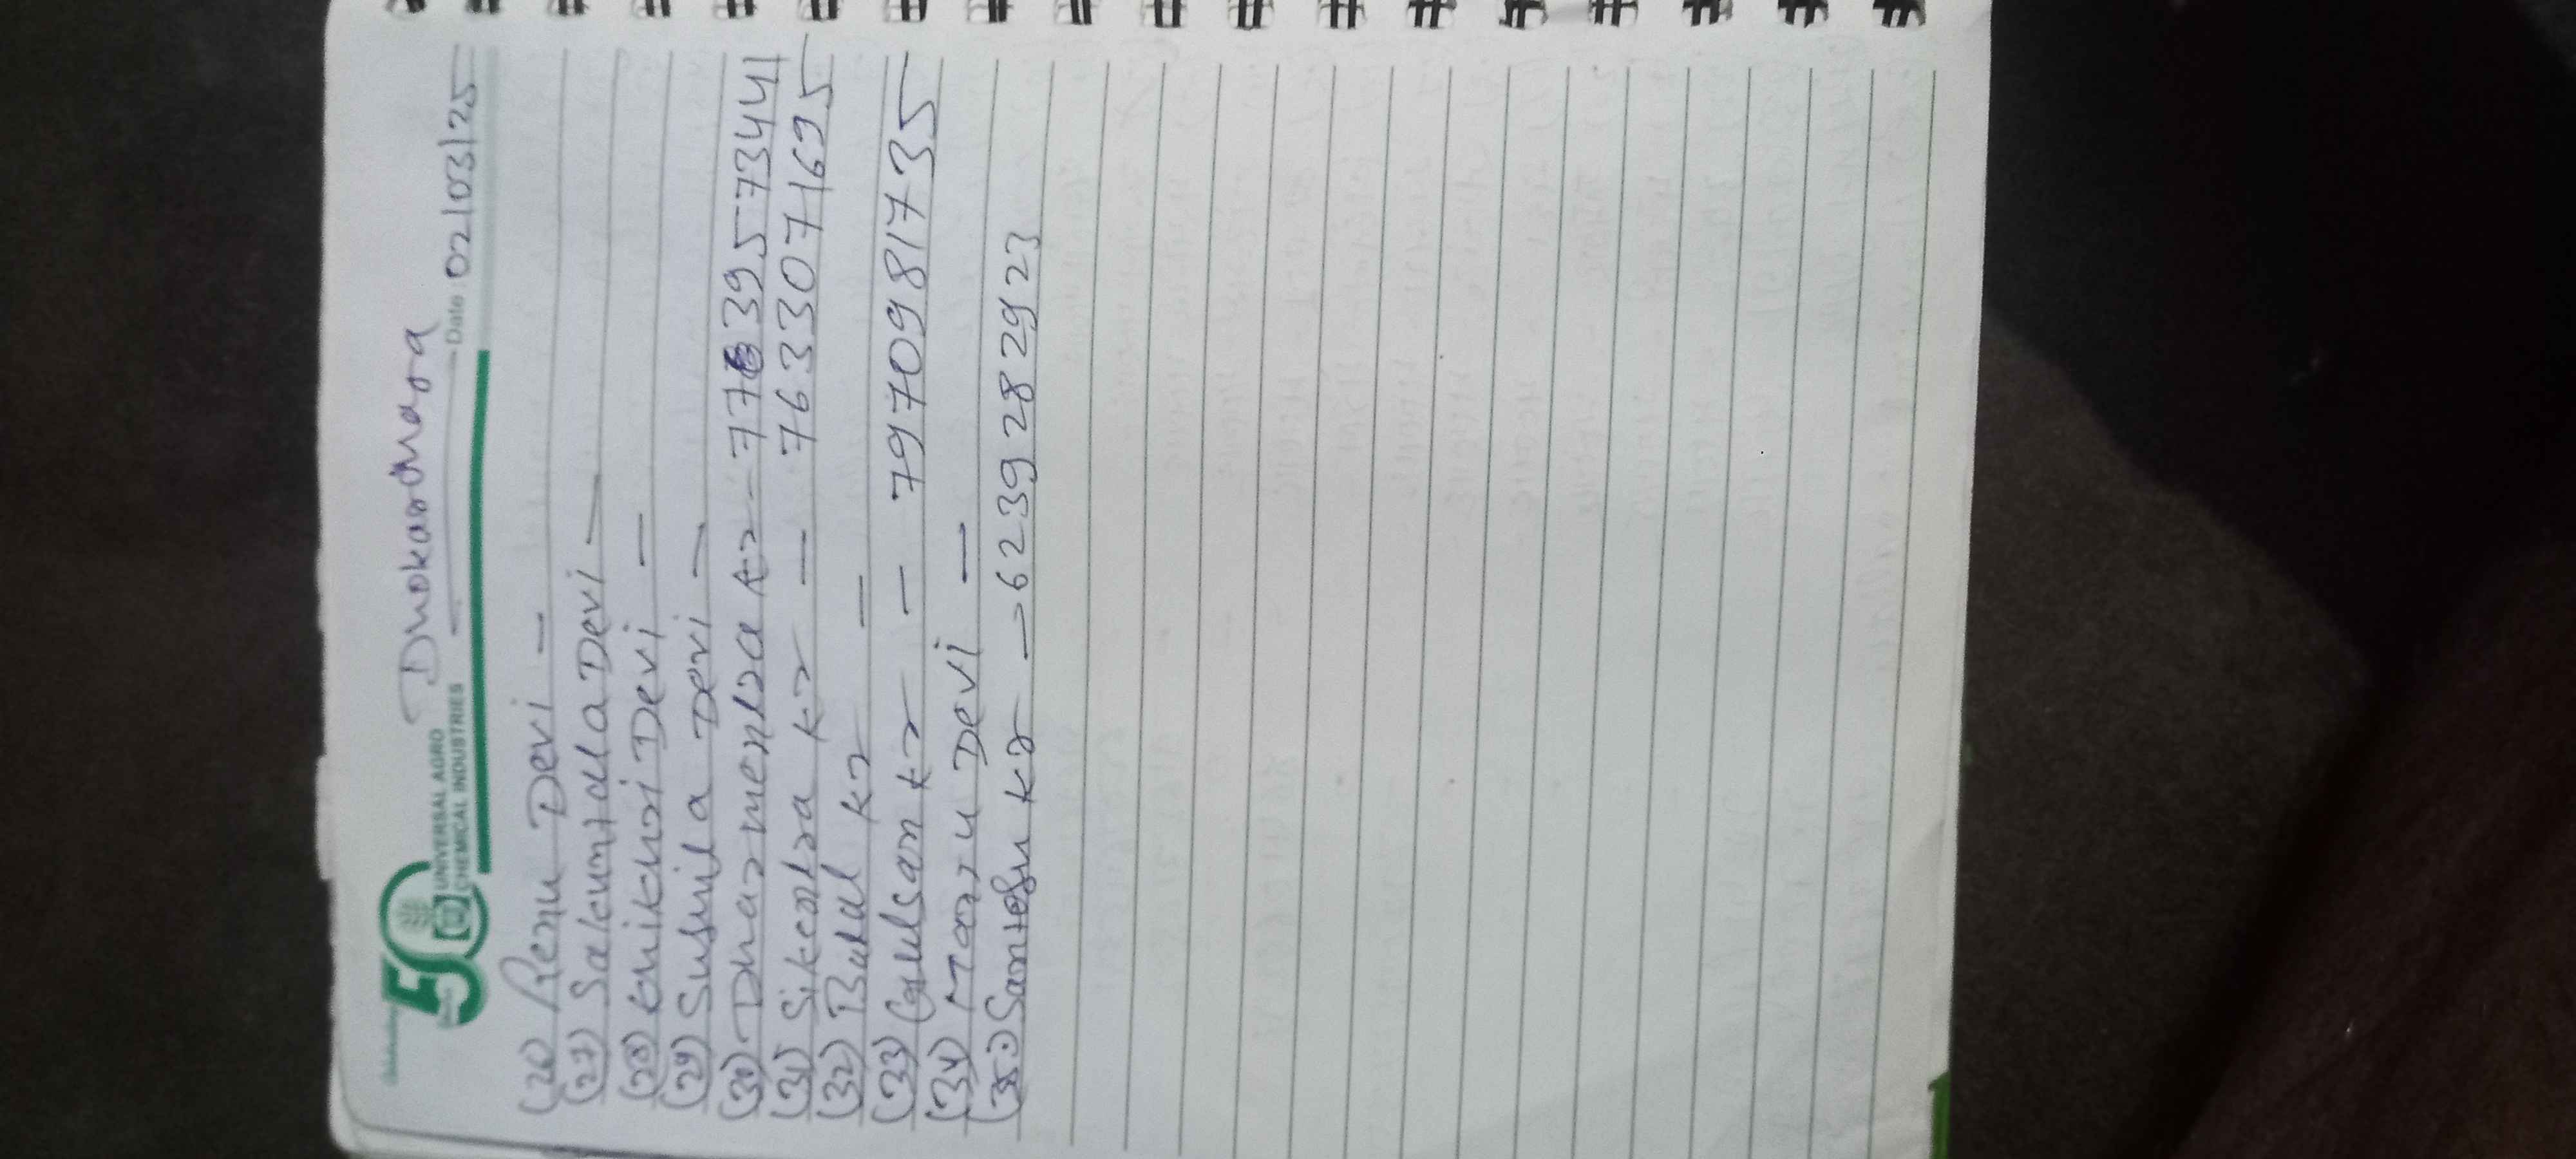 50
UNIVERSAL AGRO
CHEMICAL INDUSTRIES
Date: 02/03/25
(26) Renu Devi -
(27) Sakuntala Devi -
(28) Devi -
(29) Susmila Devi -
(30) Dharmendra kr - 3957344
(31) Sikendra kr - 7633071695
(32) Bulal kr -
(33) Gulsan kr - 7970981735
(34) Manju Devi -
(35) Santosh kr - 6239282923